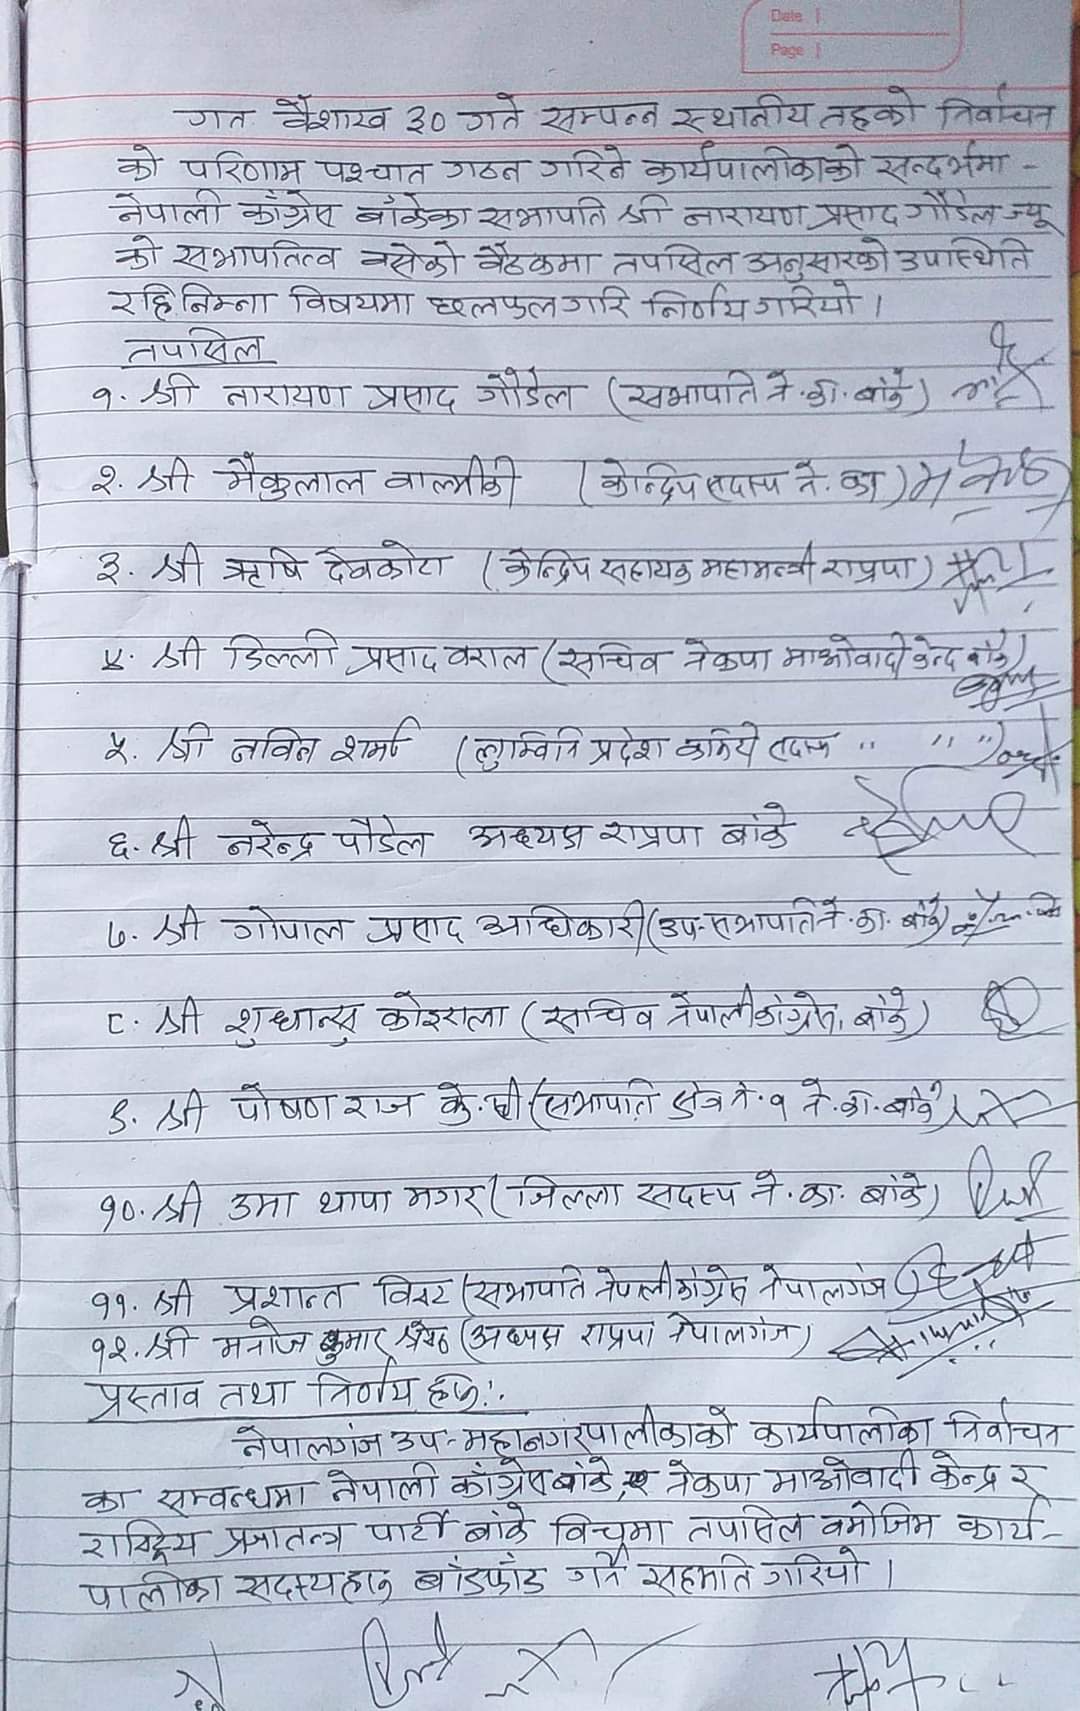 Date
Page
गत वैशाख ३० गते सम्पन्न स्थानीय तहको निर्वाचन
को परिणाम पश्चात गठन गरिने कार्यपालीकाको सन्दर्भमा -
नेपाली काँग्रेस बाँकेका सभापति श्री नारायण प्रसाद गौडेल ज्यू
को सभापतित्व बसेको बैठकमा तपसिल अनुसारको उपस्थिति
रहि निम्न विषयमा छलफल गरि निर्णय गरियो ।
तपसिल
१. श्री नारायण प्रसाद गौडेल (सभापति ने.का. बाँके)
२. श्री मैकुलाल वाल्मीकी (केन्द्रिय सदस्य ने. का)
३. श्री ऋषि देवकोटा (केन्द्रिय सहायक महामन्त्री राप्रपा)
४. श्री डिल्ली प्रसाद वराल (सचिव नेकपा माओवादी केन्द्र बाँके)
५. श्री नविन शर्मा (लुम्विनि प्रदेश कमिटी सदस्य " " ")
६. श्री नरेन्द्र पौडेल अध्यक्ष राप्रपा बांके
७. श्री गोपाल प्रसाद अधिकारी (उप-सभापति ने.का. बाँके)
८. श्री शुधान्सु कोइराला (सचिव नेपाली काँग्रेस, बाँके)
९. श्री पोषण राज के.सी (सभापति क्षेत्र नं. १ ने.का. बाँके)
१०. श्री उमा थापा मगर (जिल्ला सदस्य ने. का. बांके)
११. श्री प्रशान्त विष्ट (सभापति नेपाली काँग्रेस नेपालगंज
१२. श्री मनोज कुमार श्रेष्ठ (अध्यक्ष राप्रपा नेपालगंज)
प्रस्ताव तथा निर्णय हरु:.
नेपालगंज उप-महानगरपालीकाको कार्यपालीका निर्वाचन
का सम्वन्धमा नेपाली काँग्रेस बांके, नेकपा माओवादी केन्द्र र
राष्ट्रिय प्रजातन्त्र पार्टी बांके विचमा तपसिल वमोजिम कार्य-
पालीका सदस्यहरु बाँडफाँड गर्ने सहमति गरियो ।